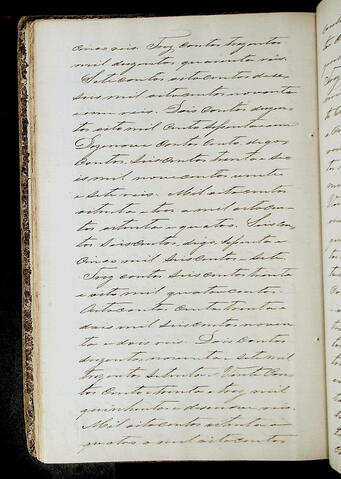 cinco reis. Tres contos trezentos
mil duzentos quarenta reis.
Sete contos oito centos deses
seis mil oito centos noventa
e um reis. Dois contos duzen
tos oito mil cento setenta e um
Dezenove contos cento, digo,
Contos, seis centos trinta e se
is mil nove centos vinte
e sete reis. Mil oito centos
oitenta e tres a mil oitocen
tos oitenta e quatro. Seis con
tos seis centos, digo, setenta e
cinco mil seis centos e sete.
Tres contos seis centos trinta
e oito mil quatro centos.
Oito contos, cento trinta e
dois mil seis centos noven
ta e dois reis. Dois contos
duzentos noventa e sete mil
trezentos setenta. Vinte Con
tos cento e trinta e tres mil
quinhentos e dezenove reis.
Mil oito centos oitenta e
quatro a mil oito centos